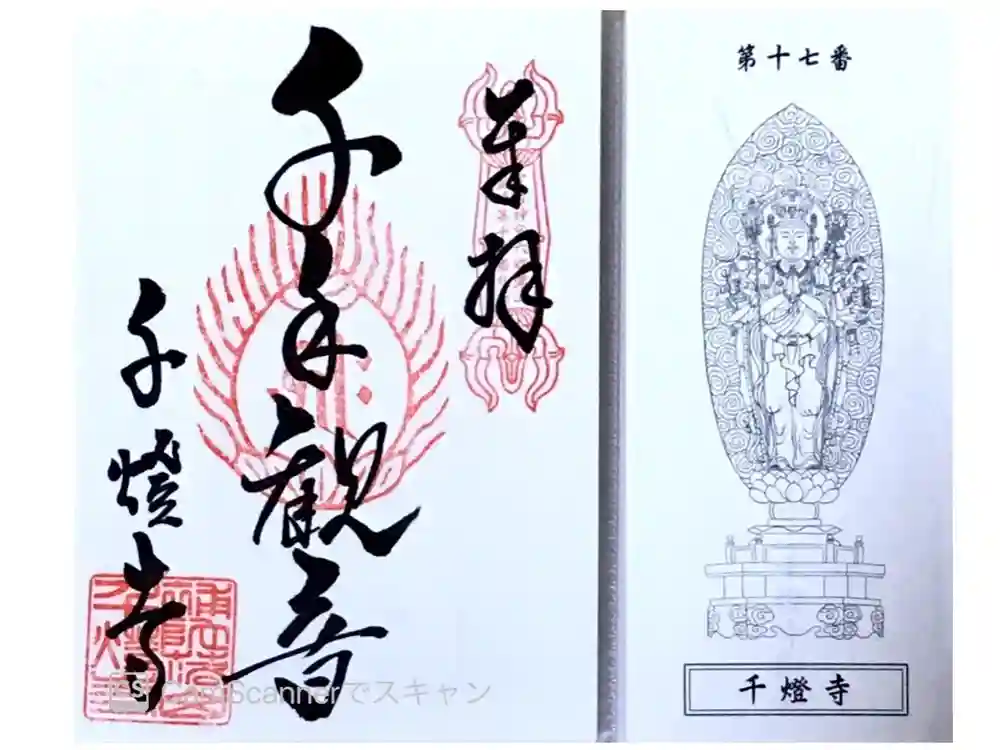 第十七番
千燈寺
奉拝
千手観音
千燈寺
CamScannerでスキャン